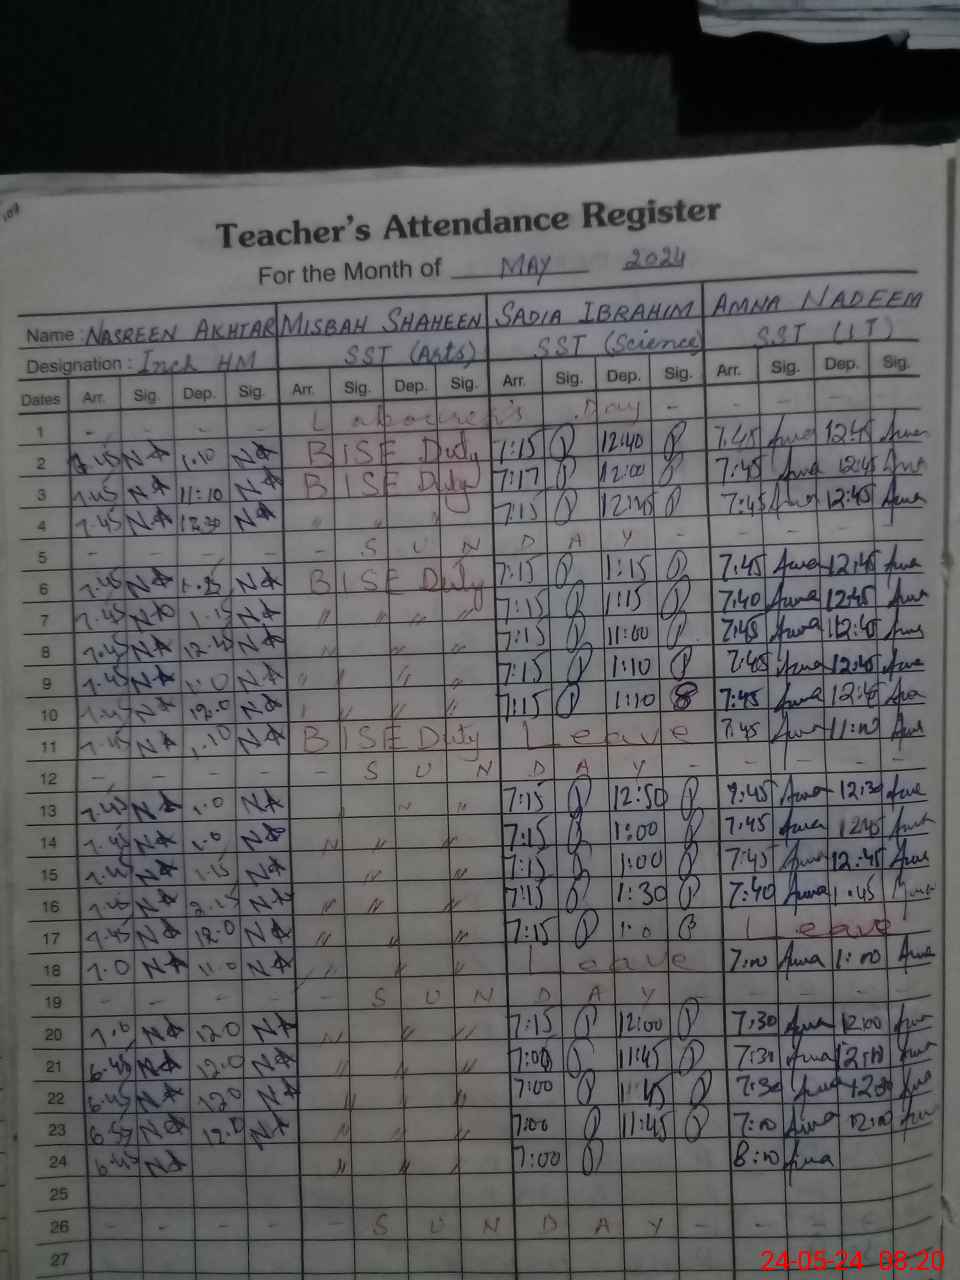 109
Teacher's Attendance Register
For the Month of MAY 2024
Name : NASREEN AKHTAR MISBAH SHAHEEN SADIA IBRAHIM AMNA NADEEM
Designation : Inch HM SST (Arts) SST (Science) SST (IT)
Dates Arr. Sig. Dep. Sig. Arr. Sig. Dep. Sig. Arr. Sig. Dep. Sig. Arr. Sig. Dep. Sig.
1 - - - - Labourer's Day - - - - -
2 7.45 NA 1.10 NA BISE Duty 7:15 12:40 7:45 Amna 12:45 Amna
3 7.45 NA 11:10 NA BISE Duty 7:17 12:00 7:45 Amna 12:45 Amna
4 7.45 NA 12.30 NA " " " 7:15 12:45 7:45 Amna 12:45 Amna
5 - - - - - S U N D A Y - - - - -
6 7.45 NA 1.25 NA BISE Duty 7:15 1:15 7:45 Amna 12:45 Amna
7 7.45 NA 1.15 NA " " " " 7:15 1:15 7:40 Amna 12:45 Amna
8 7.45 NA 12.45 NA " " " " 7:15 11:00 7:45 Amna 12:45 Amna
9 7.45 NA 1.0 NA " " " " 7:15 1:10 7:45 Amna 12:45 Amna
10 7.45 NA 12.0 NA " " " " 7:15 1:10 7:45 Amna 12:45 Amna
11 7.45 NA 1.10 NA BISE Duty Leave 7:45 Amna 11:00 Amna
12 - - - - - S U N D A Y - - - - -
13 7.45 NA 1.0 NA " " " 7:15 12:50 7:45 Amna 12:30 Amna
14 7.45 NA 1.0 NA " " " 7:15 1:00 7:45 Amna 12:45 Amna
15 7.45 NA 1.15 NA " " 7:15 1:00 7:45 Amna 12:45 Amna
16 7.45 NA 2.15 NA " " " 7:15 1:30 7:40 Amna 1:45 Amna
17 7.45 NA 12.0 NA " " " 7:15 1:0 Leave
18 7.0 NA 11.0 NA " " " Leave 7:00 Amna 1:00 Amna
19 - - - - - S U N D A Y - - - - -
20 7.0 NA 12.0 NA " " " 7:15 12:00 7:30 Amna 12:00 Amna
21 6.45 NA 12.0 NA " " " 7:00 11:45 7:30 Amna 12:10 Amna
22 6.45 NA 12.0 NA " " " 7:00 11:45 7:30 Amna 12:00 Amna
23 6.57 NA 12.0 NA " " " 7:00 11:45 7:00 Amna 12:00 Amna
24 6.45 NA " " " 7:00 8:10 Amna
25
26 - - - - - S U N D A Y - - - - -
27
24-05-24 08:20